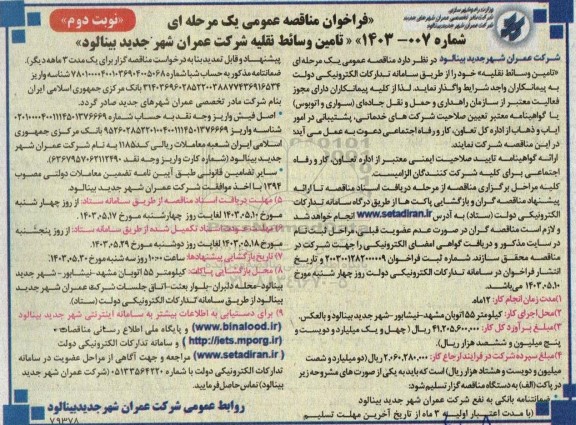 وزارت راه و شهرسازی
شرکت مادر تخصصی عمران شهرهای جدید
شرکت عمران شهر جدید بینالود
«فراخوان مناقصه عمومی یک مرحله ای
شماره ۰۰۷-۱۴۰۳» «تامین وسائط نقلیه شرکت عمران شهر جدید بینالود»
«نوبت دوم»
شرکت عمران شهر جدید بینالود در نظر دارد مناقصه عمومی یک مرحله ای
«تامین وسائط نقلیه» خود را از طریق سامانه تدارکات الکترونیکی دولت
به پیمانکاران واجد شرایط واگذار نماید. لذا از کلیه پیمانکاران دارای مجوز
فعالیت معتبر از سازمان راهداری و حمل و نقل جاده‌ای (سواری و اتوبوس)
یا گواهینامه معتبر تعیین صلاحیت شرکت های خدماتی، پشتیبانی در امور
ایاب و ذهاب از اداره کل تعاون، کار و رفاه اجتماعی دعوت به عمل می آید
در این مناقصه شرکت نمایند.
ارائه گواهینامه تایید صلاحیت ایمنی معتبر از اداره تعاون، کار و رفاه
اجتماعی برای کلیه شرکت کنندگان الزامیست.
کلیه مراحل برگزاری مناقصه از مرحله دریافت اسناد مناقصه تا ارائه
پیشنهاد مناقصه گران و بازگشایی پاکت ها از طریق درگاه سامانه تدارکات
الکترونیکی دولت (ستاد) به آدرس www.setadiran.ir انجام خواهد شد
و لازم است مناقصه گران در صورت عدم عضویت قبلی، مراحل ثبت نام
در سایت مذکور و دریافت گواهی امضای الکترونیکی را جهت شرکت در
مناقصه محقق سازند. شماره ثبت فراخوان ۲۰۰۳۰۰۱۲۸۲۰۰۰۰۰۹ و تاریخ
انتشار فراخوان در سامانه تدارکات الکترونیکی دولت روز چهار شنبه مورخ
۱۴۰۳.۰۵.۱۰ می‌باشد.
۱)مدت زمان انجام کار: ۱۲ماه.
۲)محل اجرای کار: کیلومتر ۵۵ اتوبان مشهد-نیشابور-شهر جدید بینالود و بالعکس.
۳)مبلغ برآورد کل کار: ۴۱.۲۰۵.۶۰۰.۰۰۰ ریال (چهل و یک میلیارد و دویست و
پنج میلیون و ششصد هزار ریال).
۴)مبلغ سپرده شرکت در فرایند ارجاع کار: ۲.۰۶۰.۲۸۰.۰۰۰ ریال (دو میلیارد و شصت
میلیون و دویست و هشتاد هزار ریال) است که باید به یکی از صورت های مشروحه زیر
در پاکت (الف) به دستگاه مناقصه گزار تسلیم شود:
- ضمانتنامه بانکی به نفع شرکت عمران شهر جدید بینالود
(با مدت اعتبار اولیه ۳ ماه از تاریخ آخرین مهلت تسلیم
پیشنهاد و قابل تمدید بنا به درخواست مناقصه گزار برای یک مدت ۳ ماهه دیگر).
ضمانتنامه مذکور به حساب شبا شماره
بانک مرکزی جمهوری اسلامی ایران
بنام شرکت مادر تخصصی عمران شهرهای جدید صادر گردد.
- اصل فیش واریز وجه نقد به حساب شماره
شناسه واریز بانک مرکزی جمهوری
اسلامی ایران شعبه معاملات ریالی کد۱۱۸۵ به نام شرکت عمران شهر
جدید بینالود (شماره کارت واریز وجه نقد ۶۳۶۷۹۵۷۰۶۳۱۲۴۹۰).
- سایر تضامین قانونی طبق آیین نامه تضمین معاملات دولتی مصوب
۱۳۹۴ با اخذ موافقت شرکت عمران شهر جدید بینالود.
۵) مهلت دریافت اسناد مناقصه از طریق سامانه ستاد: از روز چهار شنبه
مورخ ۱۴۰۳.۰۵.۱۰ لغایت روز چهارشنبه مورخ ۱۴۰۳.۰۵.۱۷
۶) مهلت عودت اسناد تکمیل شده از طریق سامانه ستاد: از روز پنجشنبه
مورخ ۱۴۰۳.۰۵.۱۸ لغایت روز دوشنبه مورخ ۱۴۰۳.۰۵.۲۹
۷) تاریخ بازگشایی پیشنهادها: ساعت ۱۰:۰۰ روز سه شنبه مورخ ۱۴۰۳.۰۵.۳۰.
۸) محل بازگشایی پاکات: کیلومتر ۵۵ اتوبان مشهد-نیشابور-شهر جدید
بینالود-محله دلبران-بلوار بعثت-اتاق جلسات شرکت عمران شهر جدید
بینالود از طریق سامانه تدارکات الکترونیکی دولت (ستاد).
۹) برای دستیابی به اطلاعات بیشتر به سامانه اینترنتی شهر جدید بینالود
(www.binalood.ir) و پایگاه ملی اطلاع رسانی مناقصات
(http://iets.mporg.ir) و سامانه تدارکات الکترونیکی دولت
(www.setadiran.ir) مراجعه و جهت آگاهی از مراحل عضویت در سامانه
تدارکات الکترونیکی دولت با شماره ۰۵۱۳۳۵۶۴۲۲۰ (شرکت عمران شهر جدید
بینالود) تماس حاصل فرمایید.
روابط عمومی شرکت عمران شهر جدید بینالود
۷۹۳۷۸